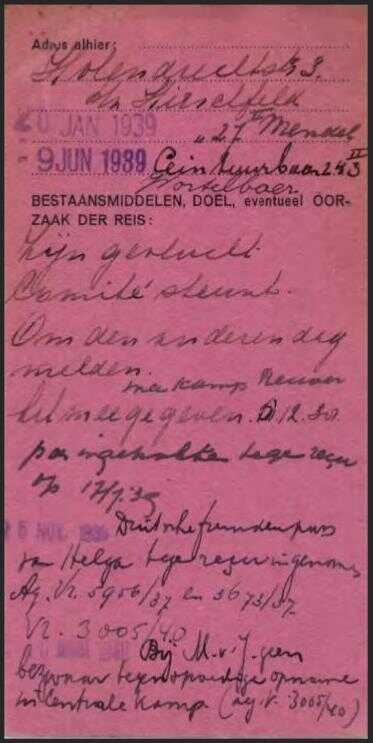 Adres alhier:
Holendrechtstr 3.
b/ Hirschfeld
0 JAN 1939
" 27 II Mendel
-9 JUN 1939 Ceintuurbaan 243 II
BESTAANSMIDDELEN, DOEL, eventueel OOR-
ZAAK DER REIS:
Zijn gevlucht
Comité steunt.
Om den anderen dag
melden.
naar kamp Reuver
meegegeven. 12.30
pas ingehouden tegen reçu
op 17/1 39
5 NOV. 1939
Duitsche fremdenpas
van Helga tegen reçu ingenomen
Ag. Vr. 5956/37 en 3673/37
Vr. 3005/40
Bij M.v.J. geen
bezwaar tegen spoedige opname
in Centrale Kamp (ag. V. 3005/40)